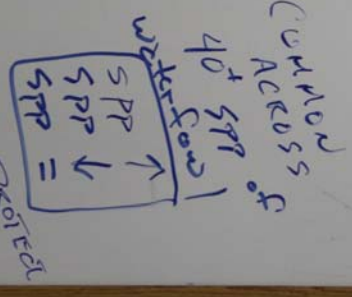 COMMON
ACROSS
40+ SPP of
waterfowl
SPP ↑
SPP ↓
SPP =
PROTECT